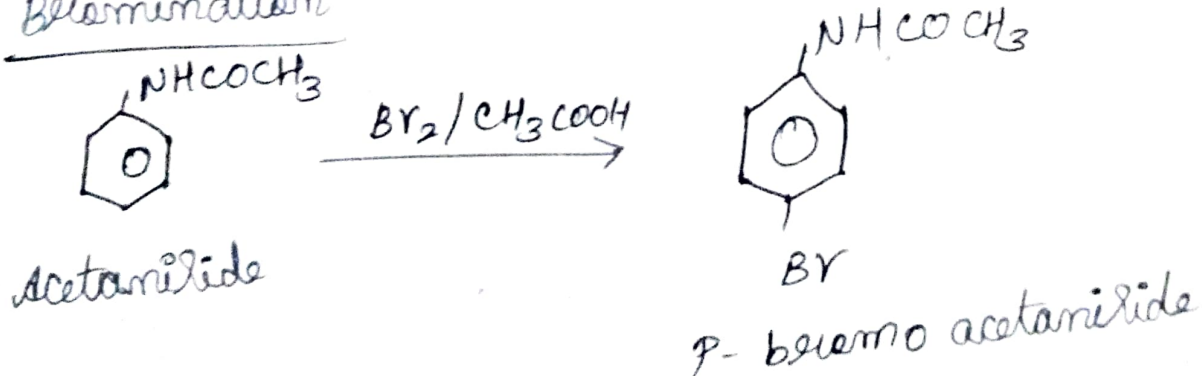 Bromination
NHCOCH₃
Br₂/CH₃COOH
NHCOCH₃
Acetanilide
Br
P- bromo acetanilide